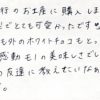 行のお土産に購入しま
どとても可愛かったです
も外のホワイトチョコもと、
感動も!の美味しさでし
の友達に教えたいなぁ